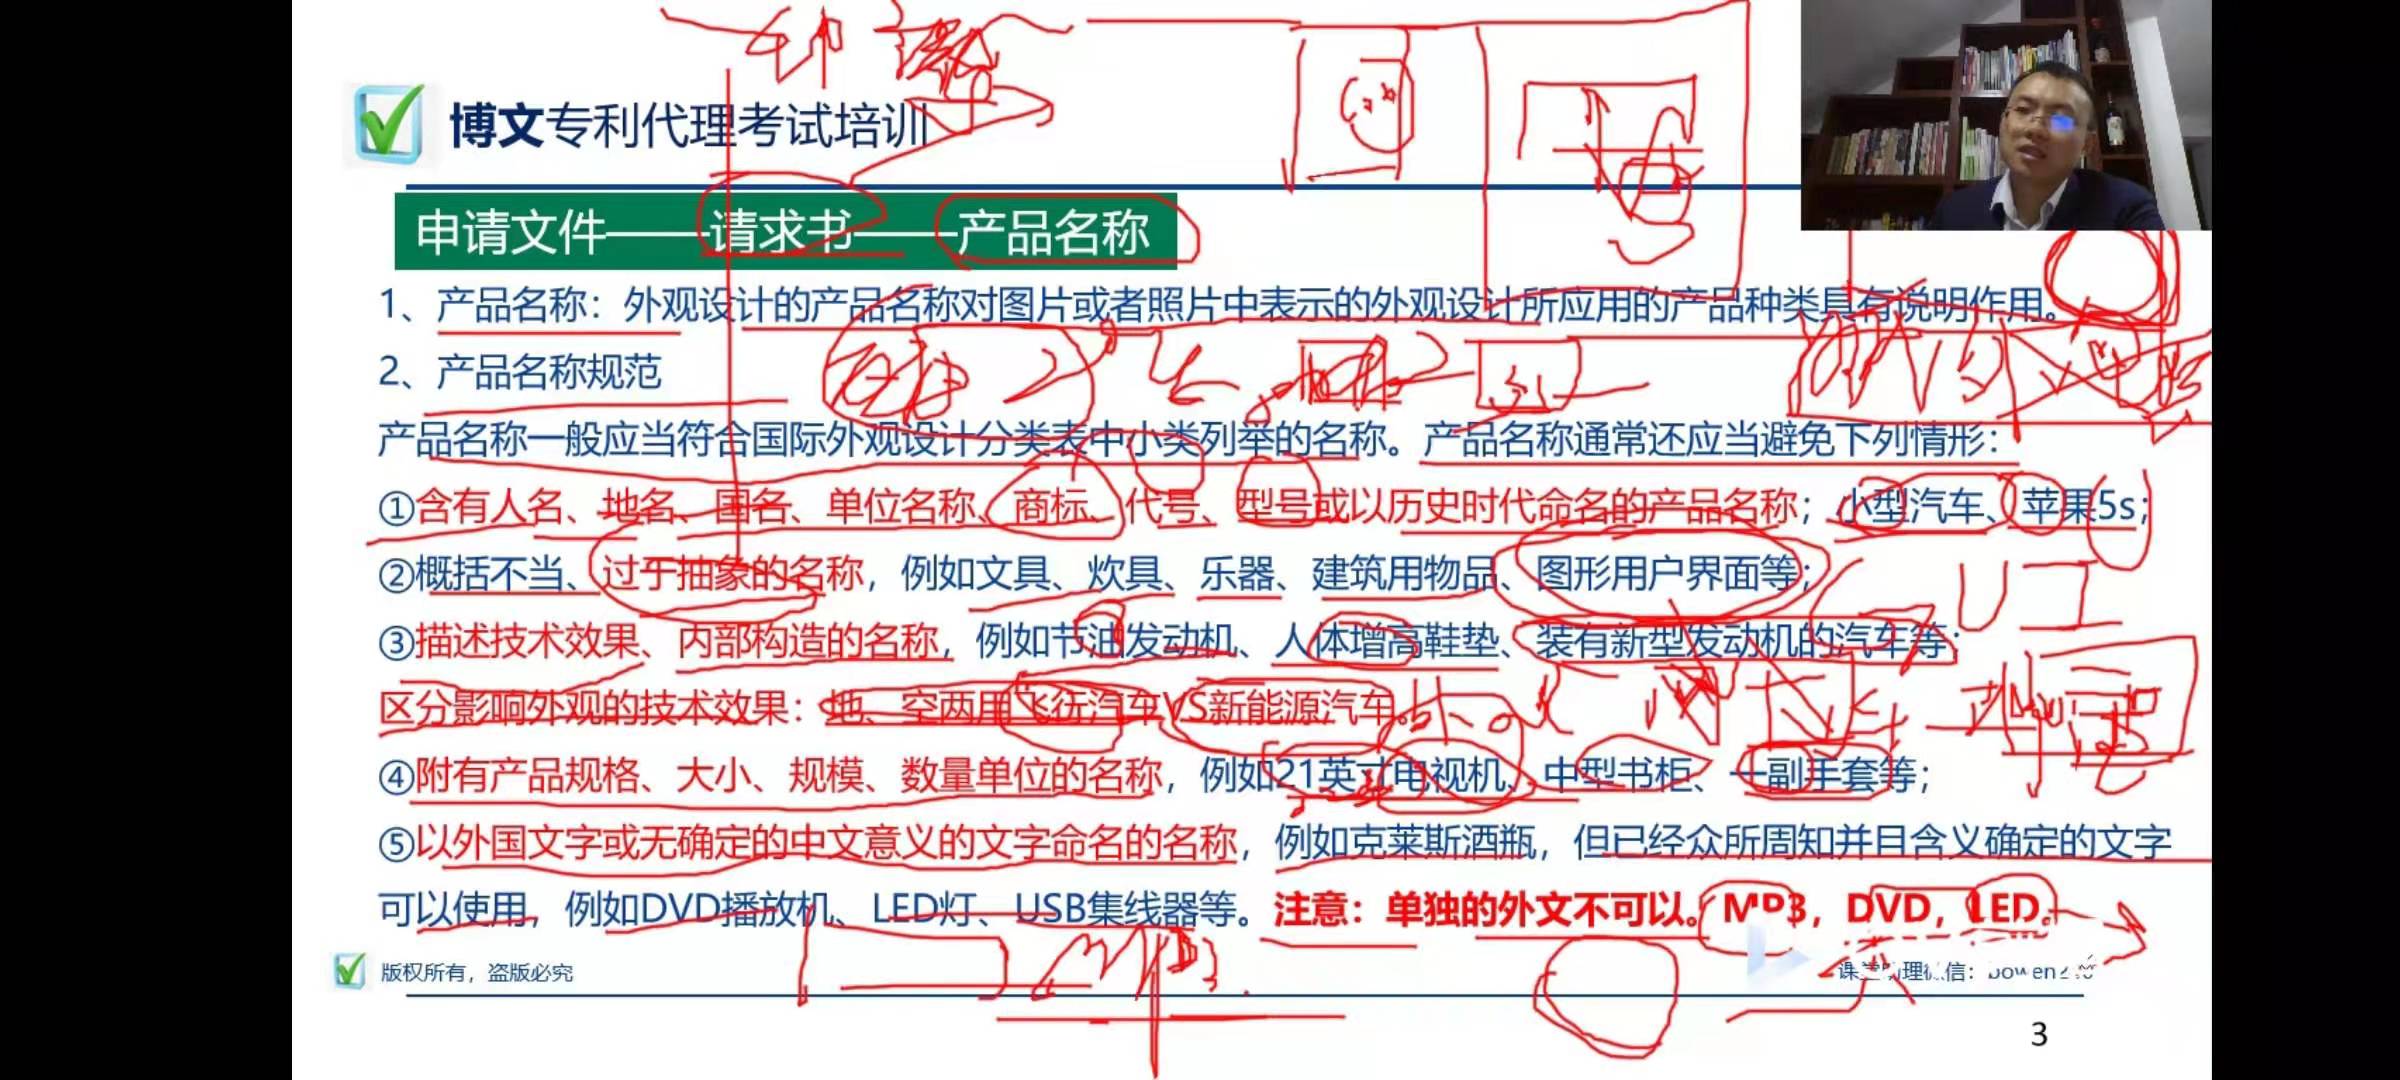 博文专利代理考试培训
申请文件——请求书——产品名称
1、产品名称：外观设计的产品名称对图片或者照片中表示的外观设计所应用的产品种类具有说明作用。
2、产品名称规范
产品名称一般应当符合国际外观设计分类表中小类列举的名称。产品名称通常还应当避免下列情形：
①含有人名、地名、国名、单位名称、商标、代号、型号或以历史时代命名的产品名称；小型汽车、苹果5s；
②概括不当、过于抽象的名称，例如文具、炊具、乐器、建筑用物品、图形用户界面等；
③描述技术效果、内部构造的名称，例如节油发动机、人体增高鞋垫、装有新型发动机的汽车等；
区分影响外观的技术效果：地、空两用飞行汽车VS新能源汽车。
④附有产品规格、大小、规模、数量单位的名称，例如21英寸电视机、中型书柜、一副手套等；
⑤以外国文字或无确定的中文意义的文字命名的名称，例如克莱斯酒瓶，但已经众所周知并且含义确定的文字
可以使用，例如DVD播放机、LED灯、USB集线器等。注意：单独的外文不可以。MP3，DVD，LED。
MP3
版权所有，盗版必究
课堂助理微信：
3